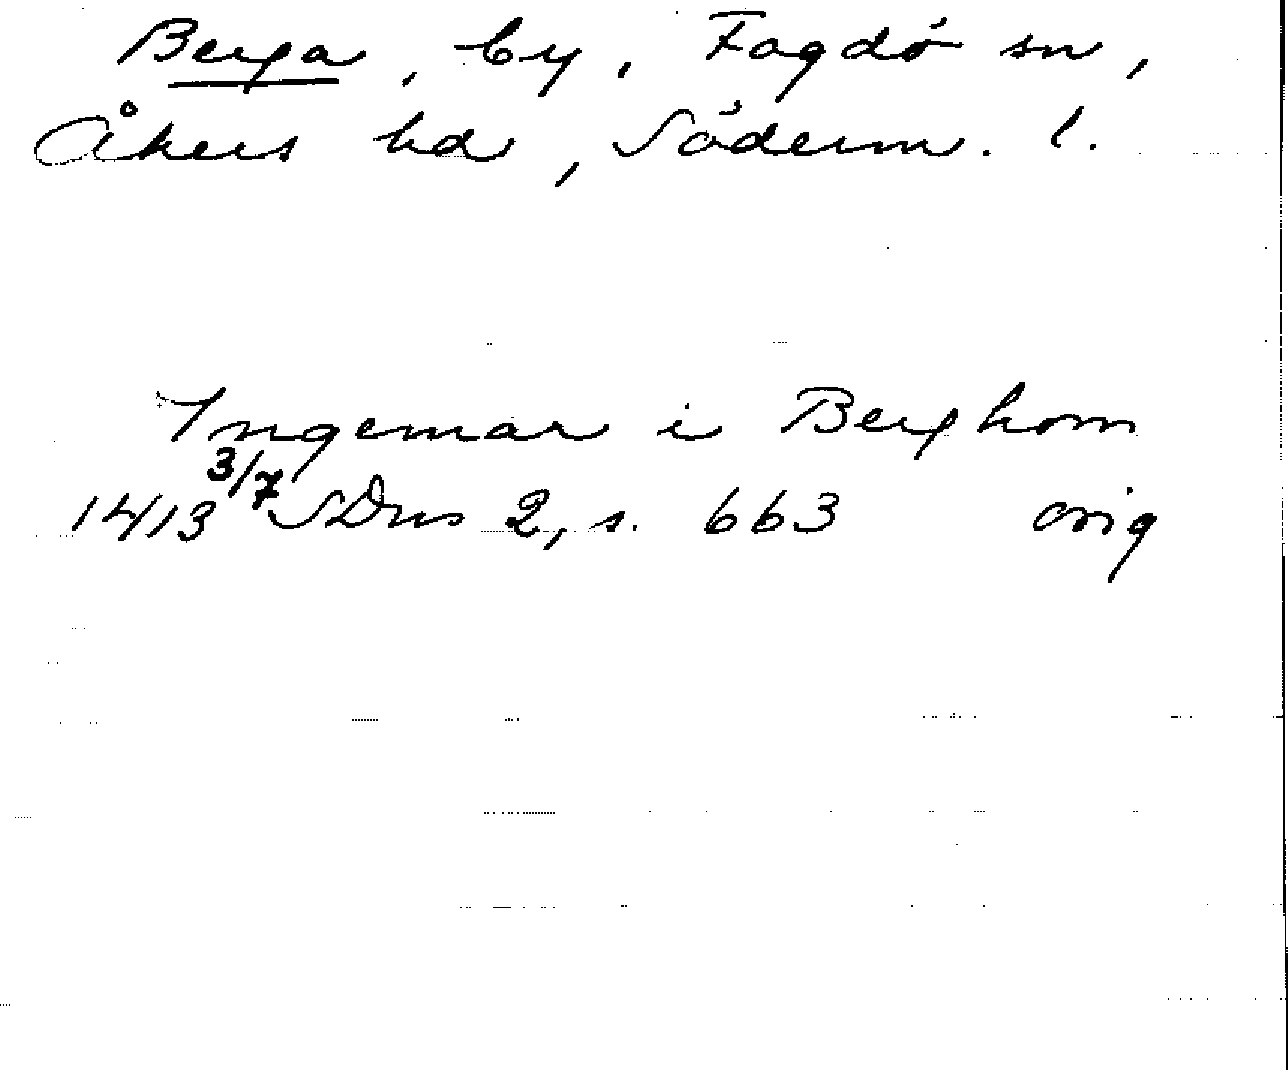 Berga, by, Fogdö sn,
Åkers hd, Söderm. l.
Ingemar i Berghom
1413 3/7 SDns 2, s. 663 orig